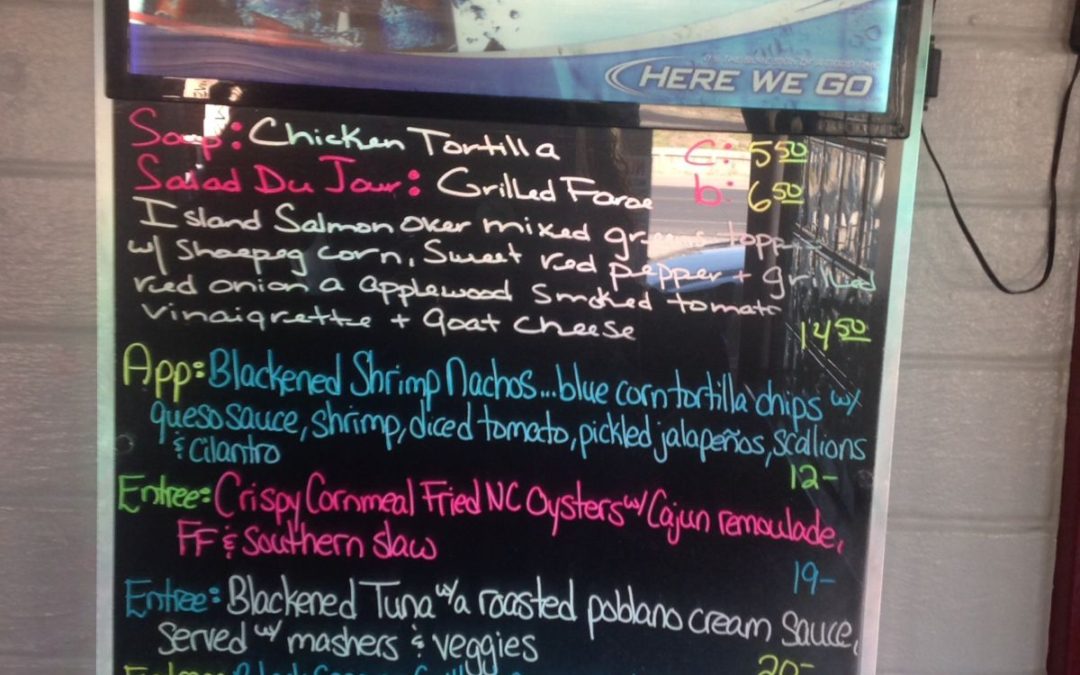 HERE WE GO
Soup: Chicken Tortilla c: 5 50
Salad Du Jour: Grilled Faroe b: 6 50
Island Salmon over mixed greens topp
w/ Shoepeg corn, Sweet red pepper + grilled
red onion a Applewood Smoked tomato
vinaigrette + Goat cheese 14 50
App: Blackened Shrimp Nachos...blue corn tortilla chips w/
queso sauce, shrimp, diced tomato, pickled jalapeños, scallions
& Cilantro 12-
Entree: Crispy Cornmeal Fried NC Oysters w/ Cajun remoulade,
FF & Southern slaw 19-
Entree: Blackened Tuna w/a roasted poblano cream sauce,
served w/ mashers & veggies 20-